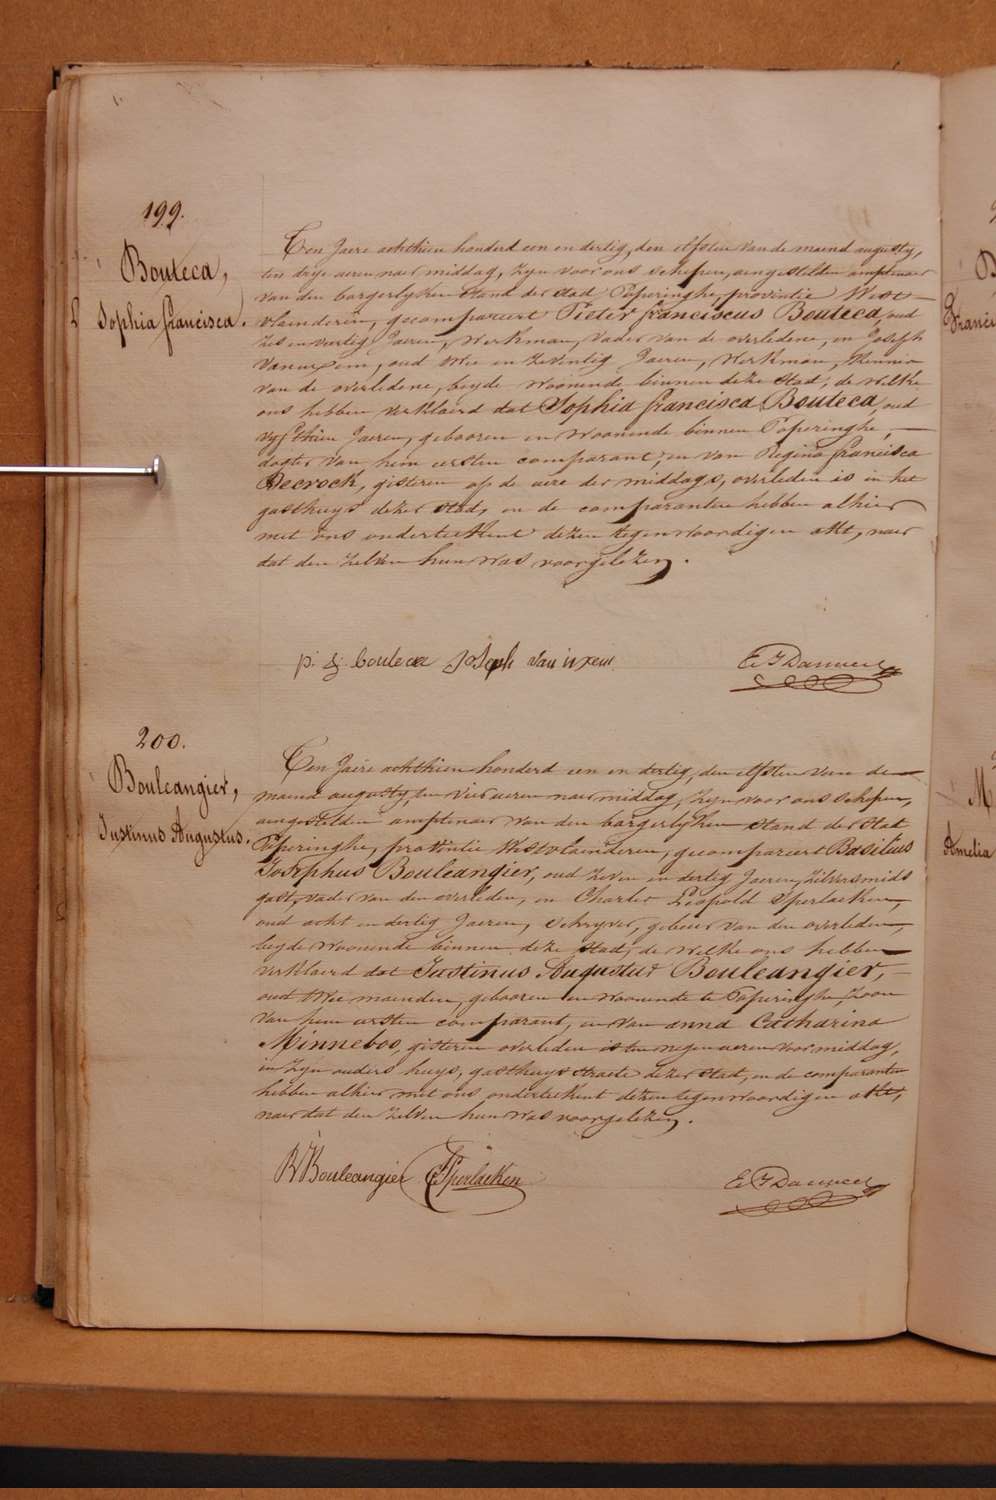 199.
Bouteca,
Sophia francisca.
Ten Jaere achthien honderd een en dertig, den elfsten van de maend augusty,
ten drije ueren naer middag, zyn voor ons schepen, aengestelden amptenaer
van den borgerlyken stand der stad Poperinghe, provintie West-
vlaenderen, gecompareert Pieter franciscus Bouteca, oud
zes en veertig Jaeren, Werkman, vader van de overledene, en Joseph
Vanuxem, oud twee en zeventig Jaeren, Werkman, Kennis
van de overledene, beyde woonende binnen deze stad, de welke
ons hebben verklaerd dat Sophia francisca Bouteca, oud
vyfthien Jaeren, gebooren en woonende binnen Poperinghe,
dogter van hem eersten comparant, en van Regina francisca
Decrock, gisteren op de uere der middags, overleden is in het
gasthuys dezer stad, en de comparanten hebben alhier
met ons onderteekent dezen tegenwoordigen akt, naer
dat den zelven hun was voorgelezen.
p. f. bouteca Joseph van uxem
200.
Bouleangier,
Justinus Augustus.
Ten Jaere achthien honderd een en dertig, den elfsten van de
maend augusty, ten vier ueren naer middag, zyn voor ons schepen,
aengestelden amptenaer van den borgerlyken stand der stad
Poperinghe, provintie Westvlaenderen, gecompareert Basilius
Josephus Bouleangier, oud zeven en dertig Jaeren, zilversmids
gast, vader van den overleden, en Charles Leopold Sperlaeken,
oud acht en dertig Jaeren, schryver, gebuer van den overleden,
beyde woonende binnen deze stad, de welke ons hebben
verklaerd dat Justinus Augustus Bouleangier,
oud twee maenden, gebooren en woonende te Poperinghe, zoon
van hem eersten comparant, en van anna Catharina
Minneboo, gisteren overleden is ten negen ueren voormiddag,
in zyn ouders huys, gasthuys straete dezer stad, en de comparanten
hebben alhier met ons onderteekent dezen tegenwoordigen akt,
naer dat den zelven hun was voorgelezen.
B Bouleangier Sperlaeken